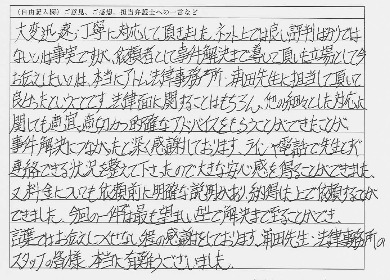 (自由記入欄)ご意見、ご感想、担当弁護士への一言など
大変迅速、丁寧に対応して頂きました。ネット上では良い評判ばかりでは
ないのは事実ですが、依頼者として事件解決まで導いて頂いた立場として今
お伝えしたいのは、本当にアトム法律事務所、浦田先生に担当して頂いて
良かったということです。法律面に関することはもちろん、他の細々とした対応に
関しても適宜、適切かつ的確なアドバイスをもらうことができたことが、
事件解決につながったと深く感謝しております。ラインや電話で先生と
連絡できる状況を整えて下さったので大きな安心感を得ることができました。
又、料金についても依頼前に明確な説明があり、納得した上で依頼することが
できました。今回の一件は最も望ましい型で解決まで至ることができ、
言葉ではお伝えしつくせない程の感謝をしております。浦田先生、法律事務所の
スタッフの皆様、本当に有難うございました。